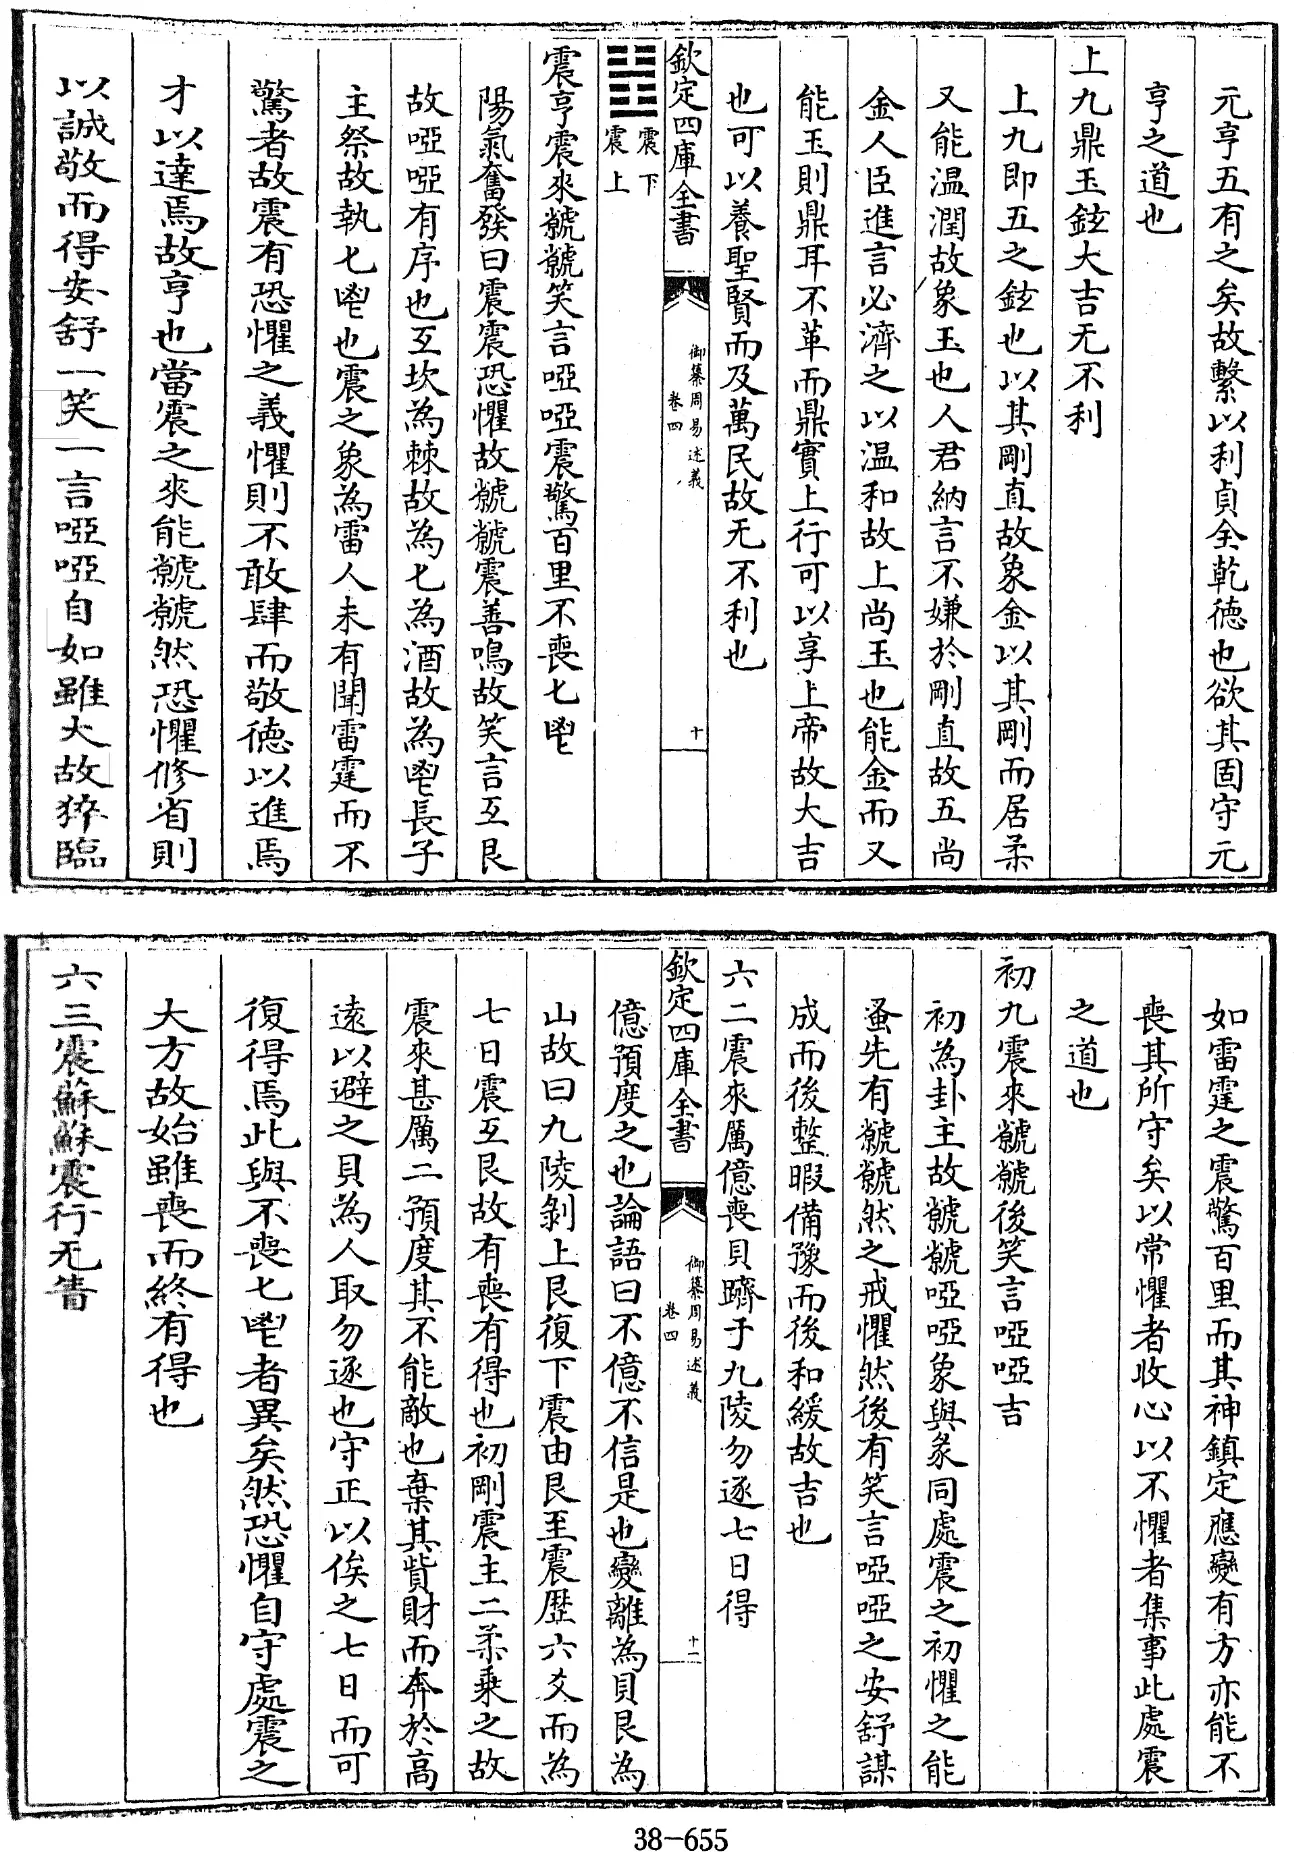 元亨五有之矣故繫以利貞全乾德也欲其固守元
亨之道也
上九鼎玉鉉大吉无不利
上九即五之鉉也以其剛直故象金以其剛而居柔
又能温潤故象玉也人君納言不嫌於剛直故五尚
金人臣進言必濟之以温和故上尚玉也能金而又
能玉則鼎耳不革而鼎實上行可以享上帝故大吉
也可以養聖賢而及萬民故无不利也
欽定四庫全書
御纂周易述義
卷四
十
震下
震上
震亨震來虩虩笑言啞啞震驚百里不喪匕鬯
陽氣奮發曰震震恐懼故虩虩震善鳴故笑言互艮
故啞啞有序也互坎為棘故為匕為酒故為鬯長子
主祭故執匕鬯也震之象為雷人未有聞雷霆而不
驚者故震有恐懼之義懼則不敢肆而敬德以進焉
才以達焉故亨也當震之來能虩虩然恐懼修省則
以誠敬而得安舒一笑一言啞啞自如雖大故猝臨
如雷霆之震驚百里而其神鎮定應變有方亦能不
喪其所守矣以常懼者收心以不懼者集事此處震
之道也
初九震來虩虩後笑言啞啞吉
初為卦主故虩虩啞啞象與彖同處震之初懼之能
蚤先有虩虩然之戒懼然後有笑言啞啞之安舒謀
成而後整暇備豫而後和緩故吉也
六二震來厲億喪貝躋于九陵勿逐七日得
欽定四庫全書
御纂周易述義
卷四
十一
億預度之也論語曰不億不信是也變離為貝艮為
山故曰九陵剝上艮復下震由艮至震歷六爻而為
七日震互艮故有喪有得也初剛震主二柔乗之故
震來甚厲二預度其不能敵也棄其貲財而奔於高
逺以避之貝為人取勿逐也守正以俟之七日而可
復得焉此與不喪匕鬯者異矣然恐懼自守處震之
大方故始雖喪而終有得也
六三震蘇蘇震行无眚
38-655